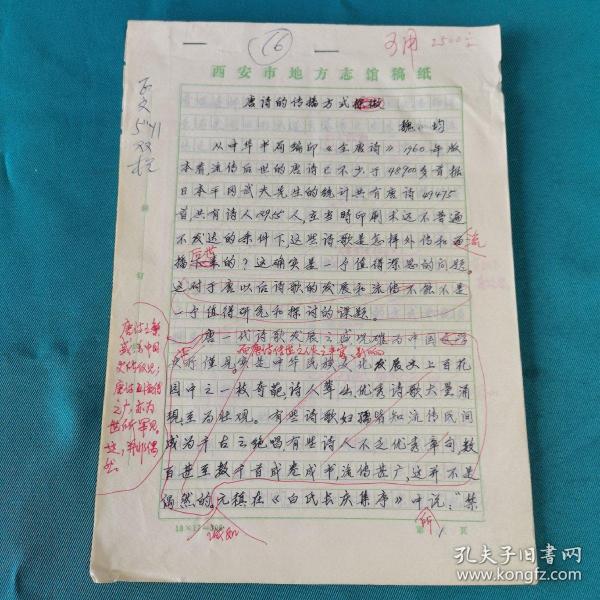 16
可用 2500字
西安市地方志馆稿纸
唐诗的传播方式探微
魏 均
从中华书局编印《全唐诗》1960年版
本看,流传后世的唐诗已不少于48900多首根据
日本平冈武大先生的统计共有唐诗49475
首共有诗人2955人,在当时印刷术远不普遍
不发达的条件下,这些诗歌是怎样外传和
流
播 的?这确实是一个值得深思的问题。
这对于唐以后诗歌的发展和流传不能不是
一个值得研究和探讨的课题。
唐一代诗歌发展之盛况难为中国
所仅见,实是中华民族文化发展史上百花
园中之一枝奇葩,诗人辈出优秀诗歌大量涌
现至为壮观。有些诗歌妇孺皆知流传民间
成为千古之绝唱,有些诗人不乏优秀章句,数
百甚至数千首成卷成书,流传甚广,这并不是
偶然的。元稹在《白氏长庆集序》中说:“禁
唐诗之繁
盛,为中国
唐诗
之广,亦为
世所罕见。
这,并非偶
然。
诚如
所
第 1 页
孔夫子旧书网
www.kongfz.com